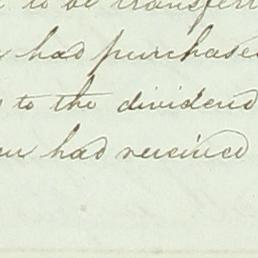 to be transferr
had purchased
to the dividend
had received